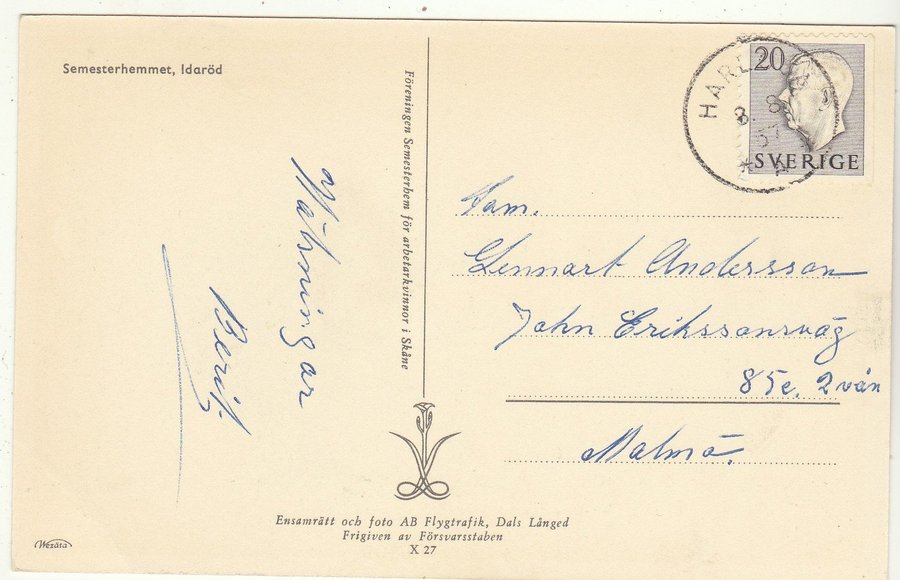 Semesterhemmet, Idaröd
Hälsningar
Berit.
Föreningen Semesterhem för arbetarkvinnor i Skåne
20
SVERIGE
8. 8
57
Fam.
Lennart Andersson
John Erikssonsväg
85c. 2vån
Malmö.
Ensamrätt och foto AB Flygtrafik, Dals Långed
Frigiven av Försvarsstaben
X 27
Wezäta